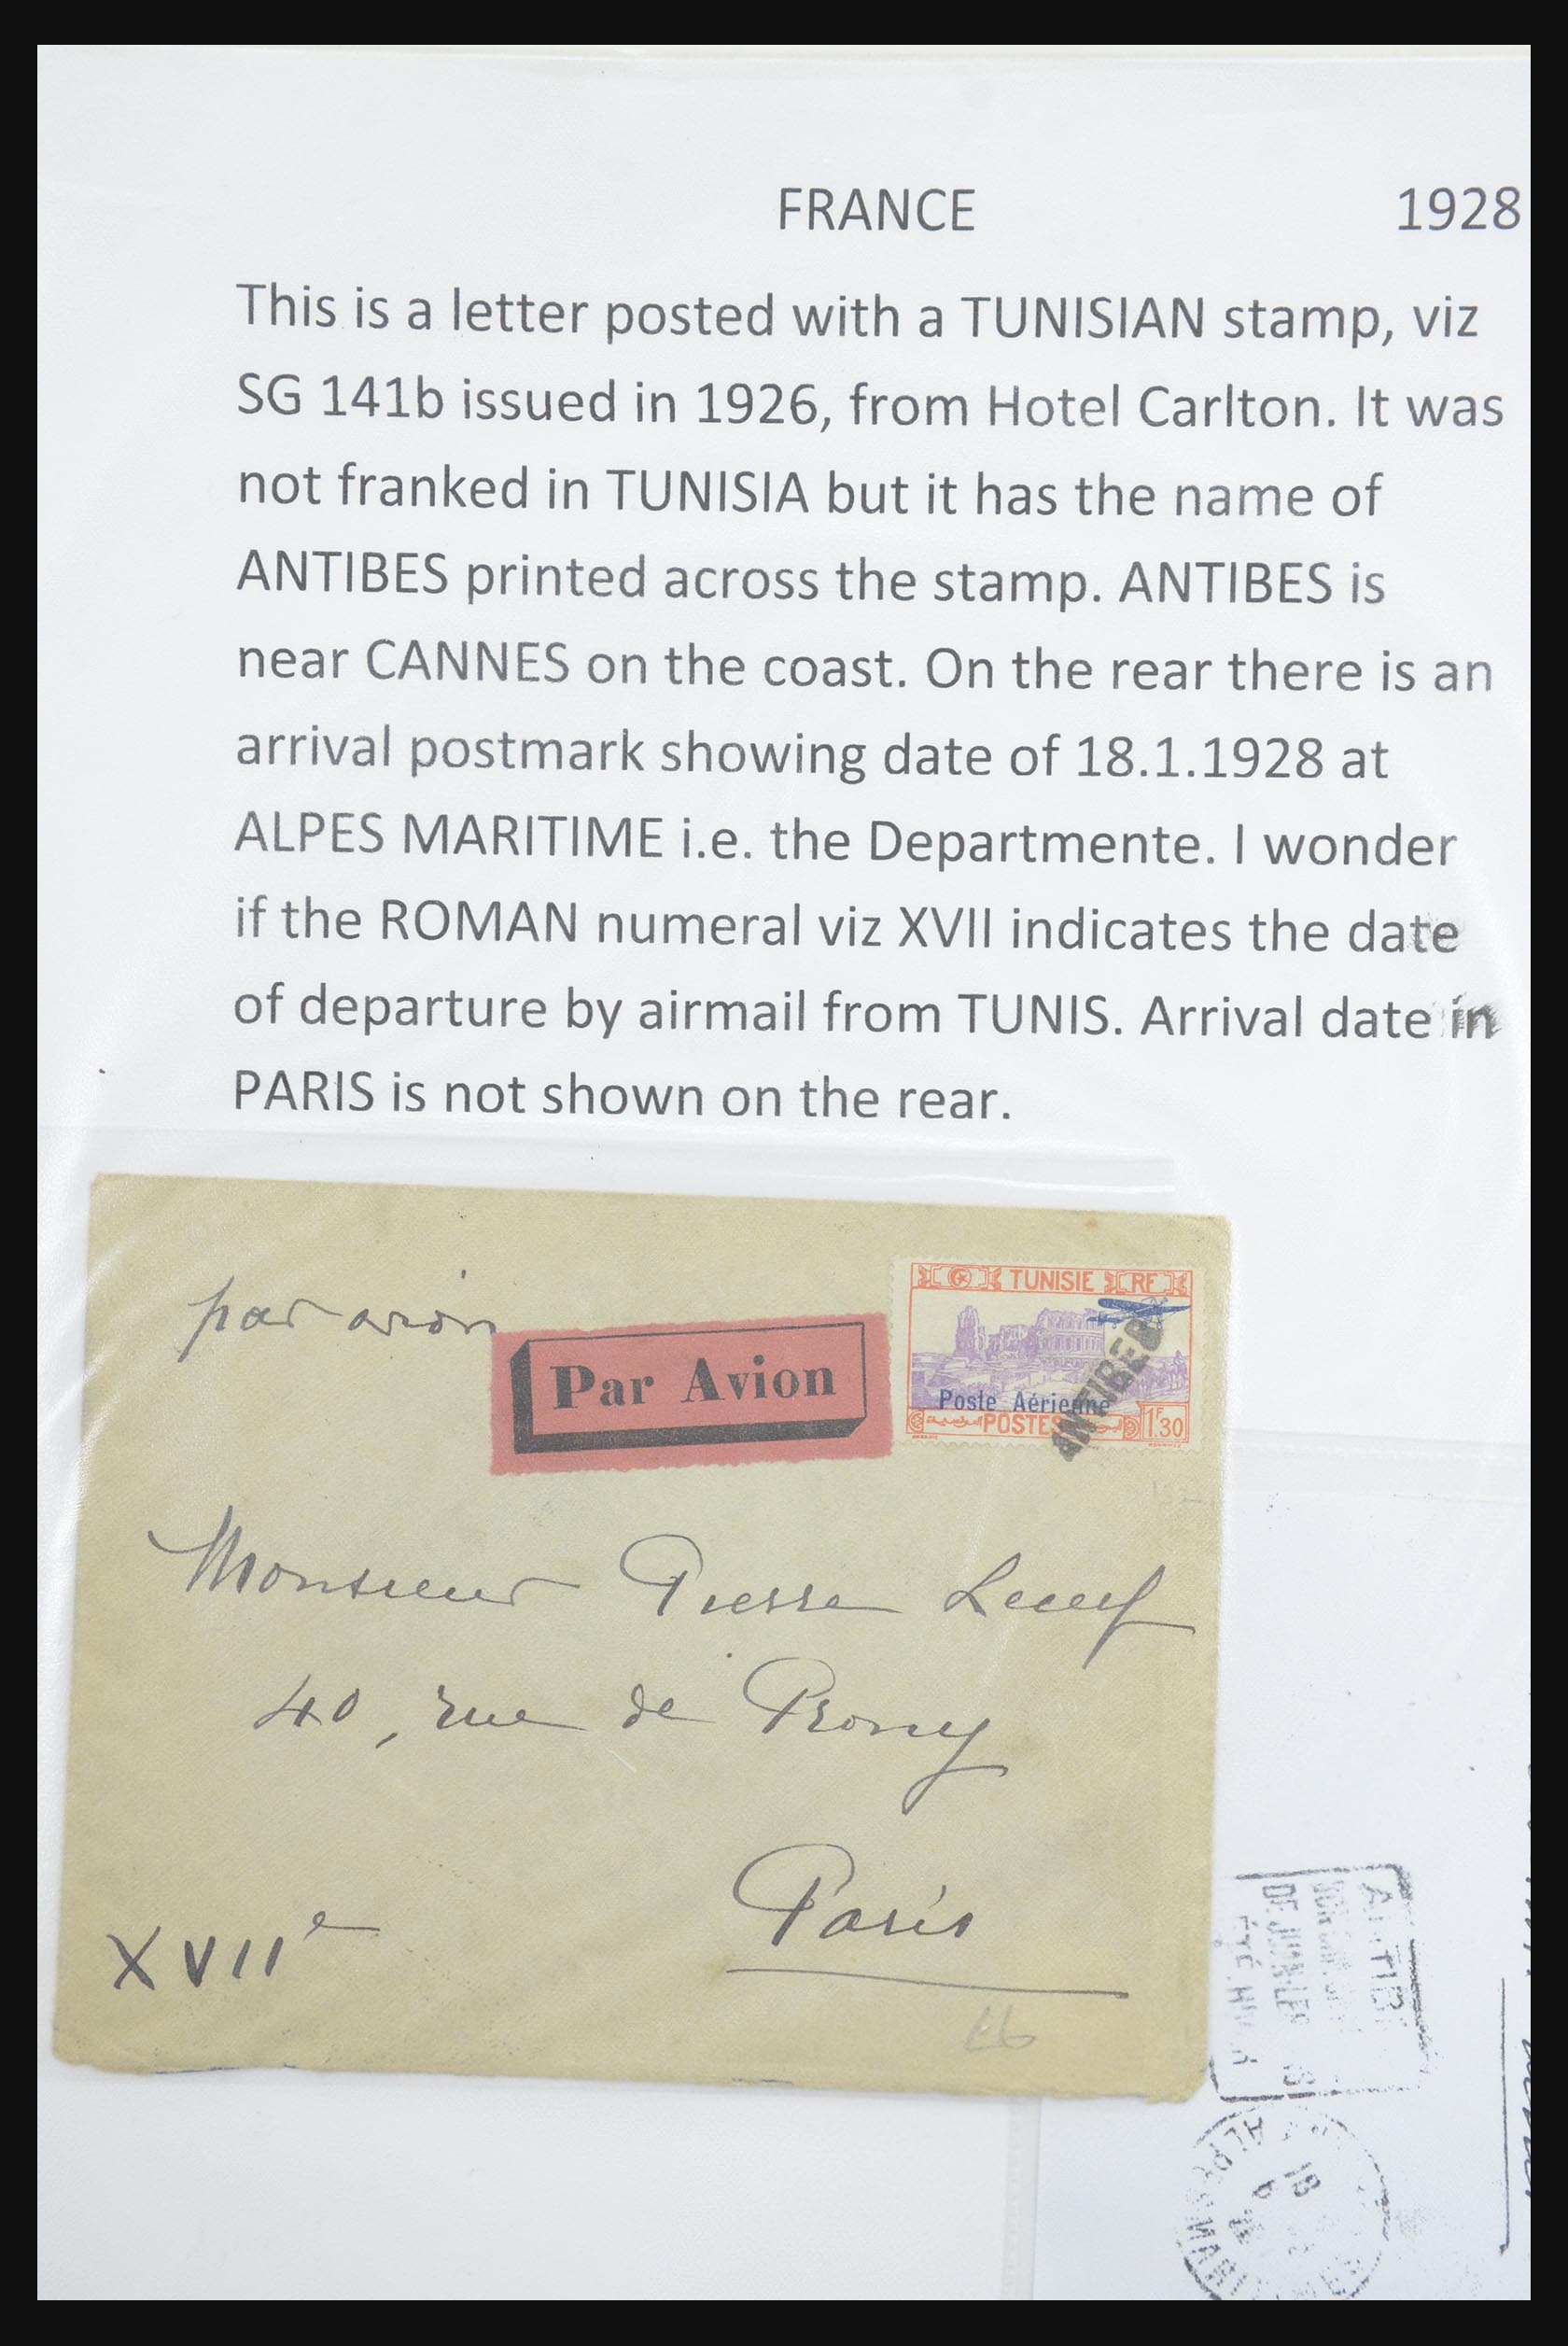 FRANCE 1928
This is a letter posted with a TUNISIAN stamp, viz
SG 141b issued in 1926, from Hotel Carlton. It was
not franked in TUNISIA but it has the name of
ANTIBES printed across the stamp. ANTIBES is
near CANNES on the coast. On the rear there is an
arrival postmark showing date of 18.1.1928 at
ALPES MARITIME i.e. the Departmente. I wonder
if the ROMAN numeral viz XVII indicates the date
of departure by airmail from TUNIS. Arrival date in
PARIS is not shown on the rear.
par avion
Par Avion
TUNISIE RF
ANTIBES
Poste Aérienne
POSTES 1F30
Monsieur Pierre
40, rue de Prony
Paris
XVIIe